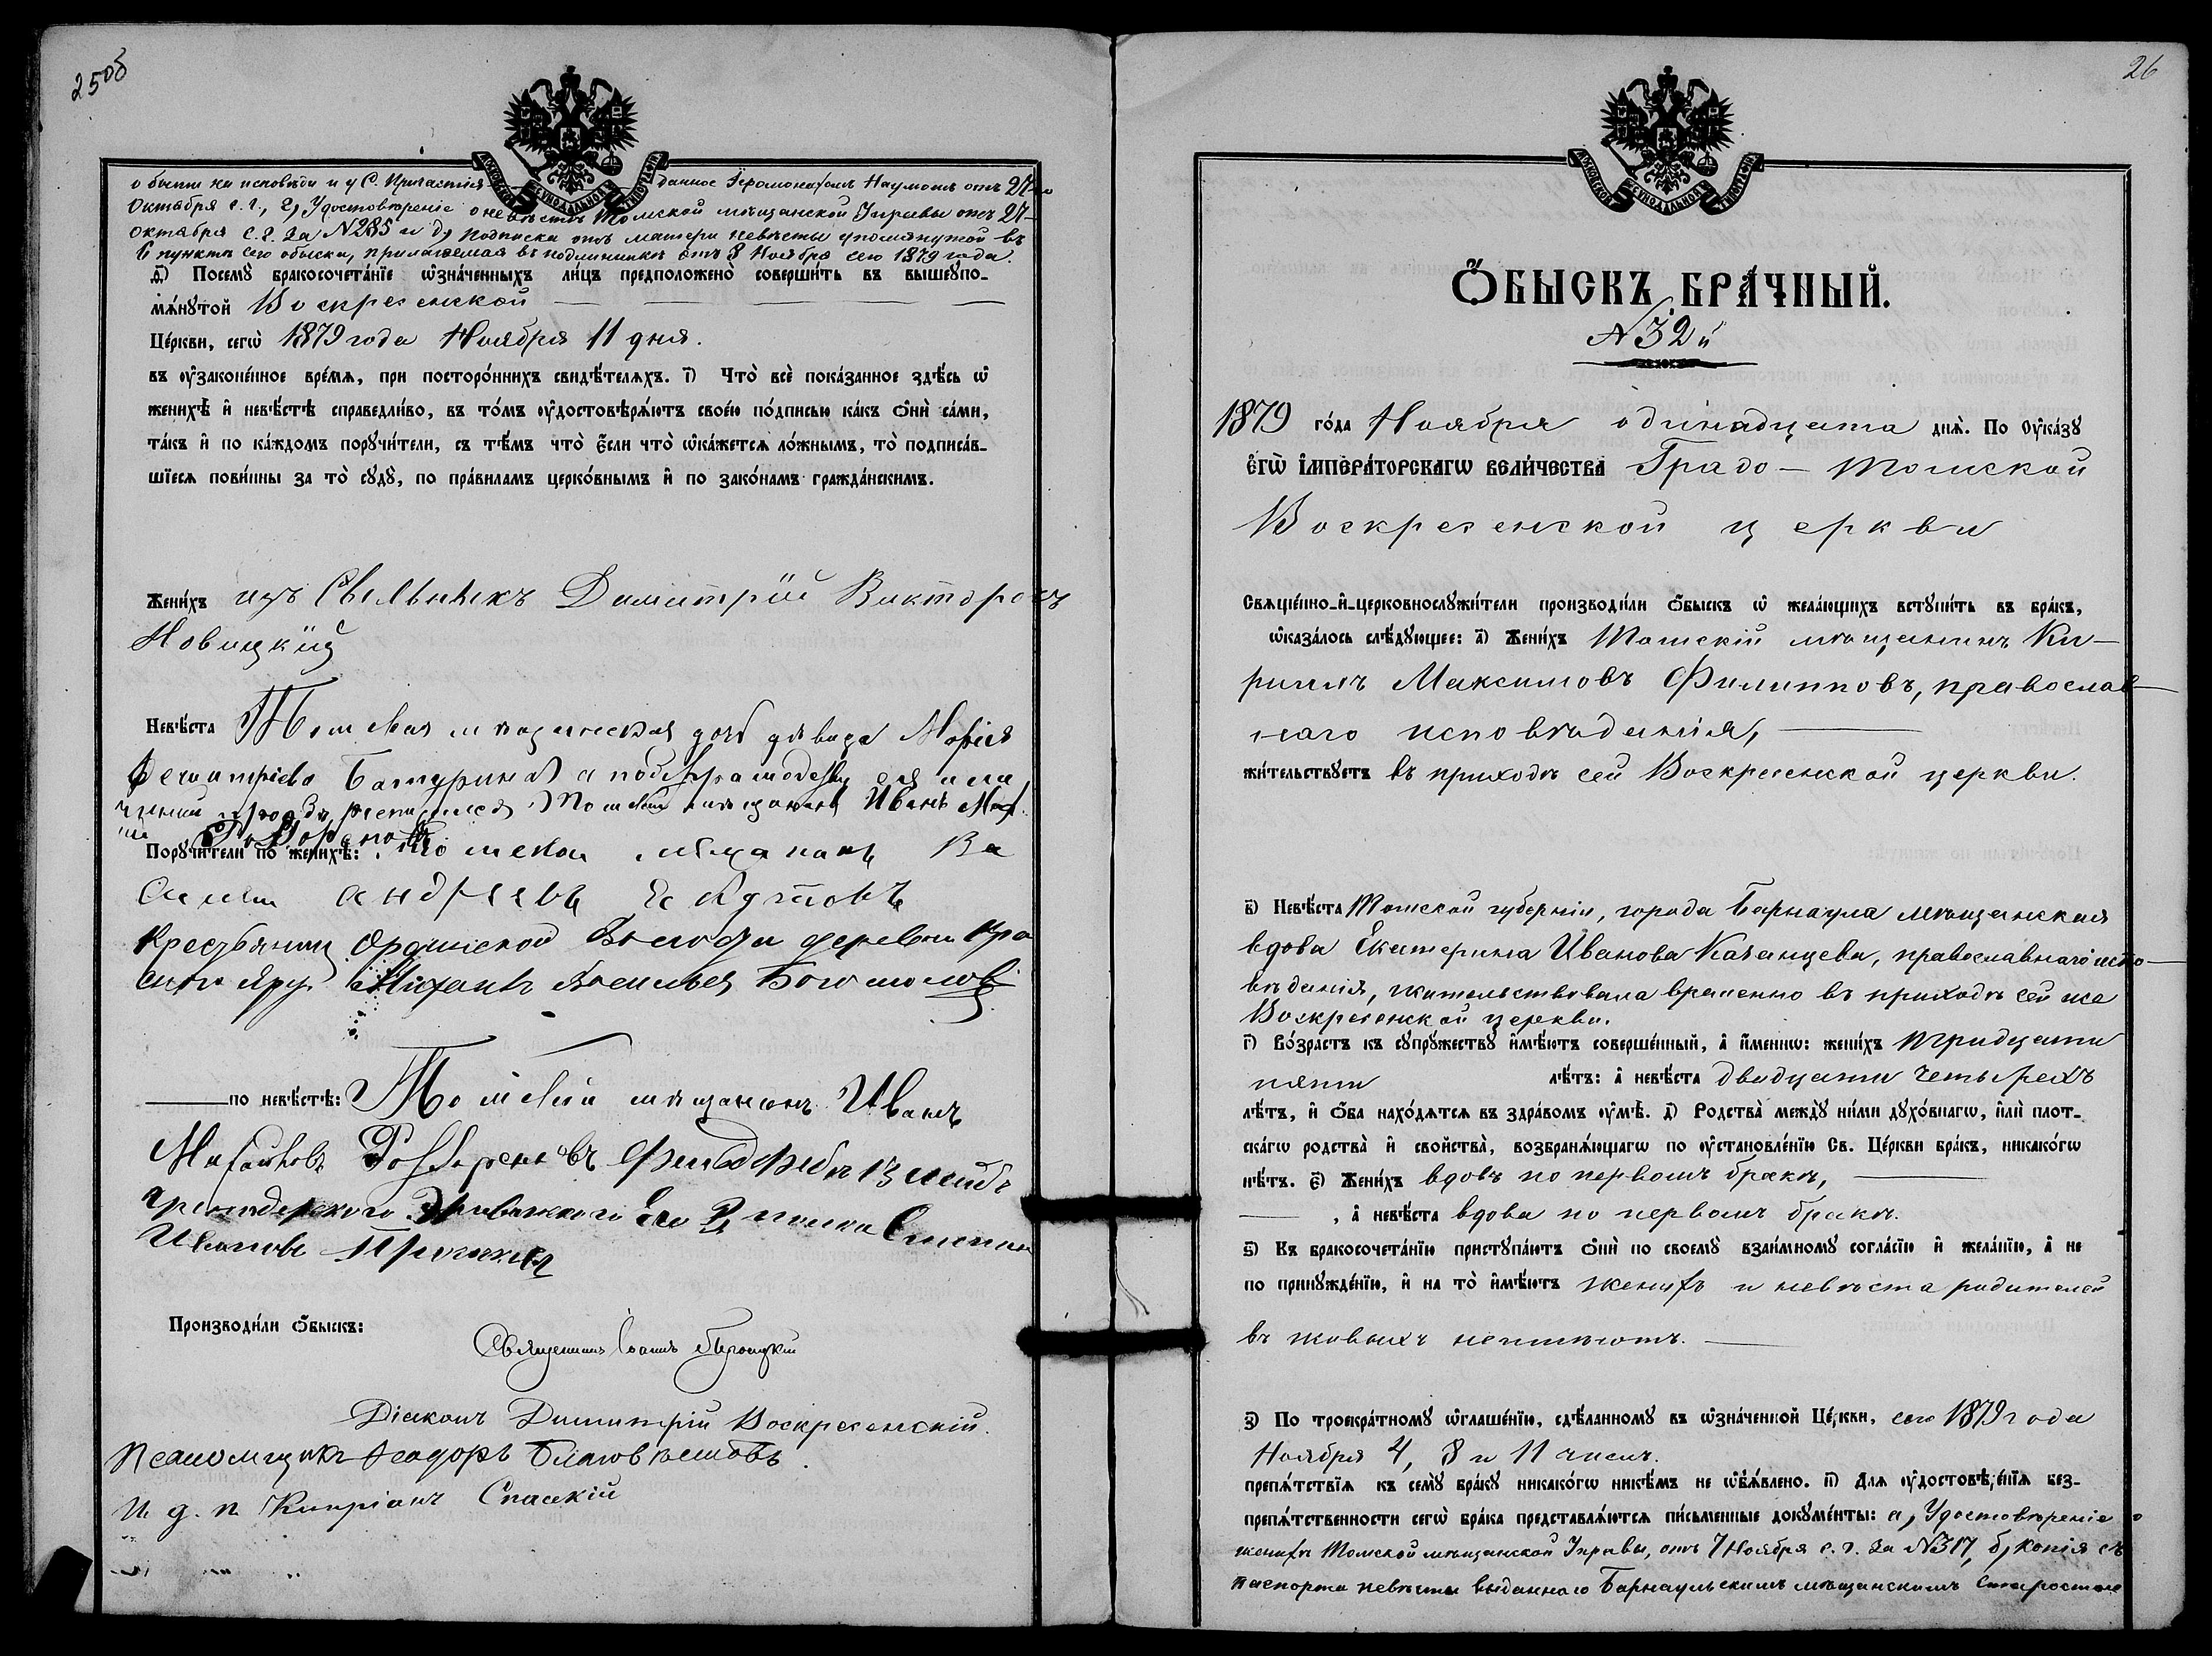 25об
о бытии на исповѣди и у С. Причастія данное Іеромонахомъ Наумомъ отъ 27го
Октября с. г., г) Удостовѣреніе о невѣстѣ Томской мѣщанской Управы отъ 27–
Октября с. г. за №285 и д) подписка отъ матери невѣсты упомянутой въ
6 пунктѣ сего обыска, прилагаемая въ подлинникѣ отъ 8 Ноября сего 1879 года.
д҃і) Посемꙋ̀ бракосочета́нїе ѡ҆зна́ченныхъ ли́цъ предположенò соверши́ть въ вышеꙋпо-
мѧ́нꙋтой Воскресенской
Це́ркви, сегѡ̀ 1879 года Ноября 11 дня.
въ ᲂу҆законе́нное вре́мѧ, при посторо́ннихъ свидѣ́телѧхъ. і҃) Что̀ всѐ пока́занное здѣ́сь ѡ҆
женихѣ̀ и҆ невѣ́стѣ справедли́во, въ то́мъ ᲂу҆достовѣрѧ́ютъ свое́ю по́дписью ка́къ ѻ҆нѝ са́ми,
та́къ и҆ по ка́ждомъ порꙋчи́тели, съ тѣ́мъ что̀ є҆́сли что̀ ѡ҆ка́жетсѧ ло́жнымъ, то̀ подписа́в-
шїесѧ пови́нны за то̀ сꙋдꙋ̀, по пра́виламъ церко́внымъ и҆ по зако́намъ гражда́нскимъ.
Жени́хъ изъ Димитрій Викторовъ
Новицкий
Невѣ́ста Томская мѣщанская дочь дѣвица Марія
Батурина а по безграмотству ея и ли
росписался Томской мѣщанинъ Иванъ
Порꙋчи́тели по женихѣ̀: Томской мѣщанинъ Ва
силий андреевъ
Крестьянинъ Ордынской Волости деревни Кра
сного яру Васильевъ Богомоловъ
по невѣ́стѣ: Томский мѣщанинъ Иванъ
Михайловъ Фельдфебель
Гренадерского Эриванского Его В полка Степанъ
Ивановъ
Производи́ли ѻ҆́быскъ:
Священникъ Іоаннъ
Діаконъ Димитрій Воскресенскій.
Псаломщикъ Ѳеодоръ Благовѣстовъ.
И. д. п. Кипріанъ Спасскій
26
Ѻ҆́БЫСКЪ БРА́ЧНЫЙ.
№32й
1879 го́да Ноября одинадцата днѧ̀. По ᲂу҆ка́зꙋ
є҆гѡ̀ і҆мпера́торскагѡ вели́чества Градо–Томской
Воскресенской церкви
Свѧще́нно-и҆-церковнослꙋжи́тели производи́ли ѻ҆́быскъ ѡ҆ жела́ющихъ встꙋпи́ть въ бра́къ,
ѡ҆каза́лось слѣ́дꙋющее: а҃) Жени́хъ Томскій мѣщанинъ Ки–
риллъ Максимовъ Филипповъ, православ–
наго исповѣданія,
жи́тельствꙋетъ въ приходѣ сей Воскресенской церкви.
в҃) Невѣ́ста Томской губерніи, города Барнаула мѣщанская
вдова Екатерина Иванова Казанцева, православнаго испо–
вѣданія, жительствовала временно въ приходѣ сей же
Воскресенской церкви.
г҃) Во́зрастъ къ сꙋпрꙋ́жествꙋ и҆мѣ́ютъ соверше́нный, а҆ и҆́меннѡ: жени́хъ тридцати
пяти лѣ́тъ: а҆ невѣ́ста двадцати четырехъ
лѣ́тъ, и҆ ѻ҆́ба нахо́дѧтсѧ въ здра́вомъ ᲂу҆мѣ̀. д҃) Родства̀ междꙋ̀ ни́ми дꙋхо́внагѡ, и҆лѝ плот-
ска́гѡ родства̀ и҆ свойства̀, возбранѧ́ющагѡ по ᲂу҆становле́нїю Св. Це́ркви бра́къ, никако́гѡ
нѣ́тъ. є҃) Жени́хъ вдовъ по первомъ бракѣ,
, а҆ невѣ́ста вдова по первомъ бракѣ.
ѕ҃) Къ бракосочета́нїю пристꙋпа́ютъ ѻ҆нѝ по своемꙋ̀ взаи́мномꙋ согла́сїю и҆ жела́нїю, а҆ не
по принꙋжде́нїю, и҆ на то̀ и҆мѣ́ютъ женихъ и невѣста родителей
въ живыхъ неимѣютъ.
з҃) По троекра́тномꙋ ѡ҆глаше́нїю, сдѣ́ланномꙋ въ ѡ҆зна́ченной Це́ркви, сего 1879 года
Ноября 4, 8 и 11 чиселъ.
препѧ́тствїѧ къ семꙋ̀ бра́кꙋ никако́гѡ никѣ́мъ не ѡ҆б̾ѧ́влено. и҃) Длѧ ᲂу҆достовѣре́нїѧ без-
препѧ́тственности сегѡ̀ бра́ка представлѧ́ютсѧ пи́сьменные докꙋме́нты: а) Удостовѣреніе о
женихѣ Томской мѣщанской Управы, отъ 7 Ноября с. г. за №317, б) Копія съ
паспорта невѣсты выданнаго Барнаульскимъ мѣщанскимъ Старостою